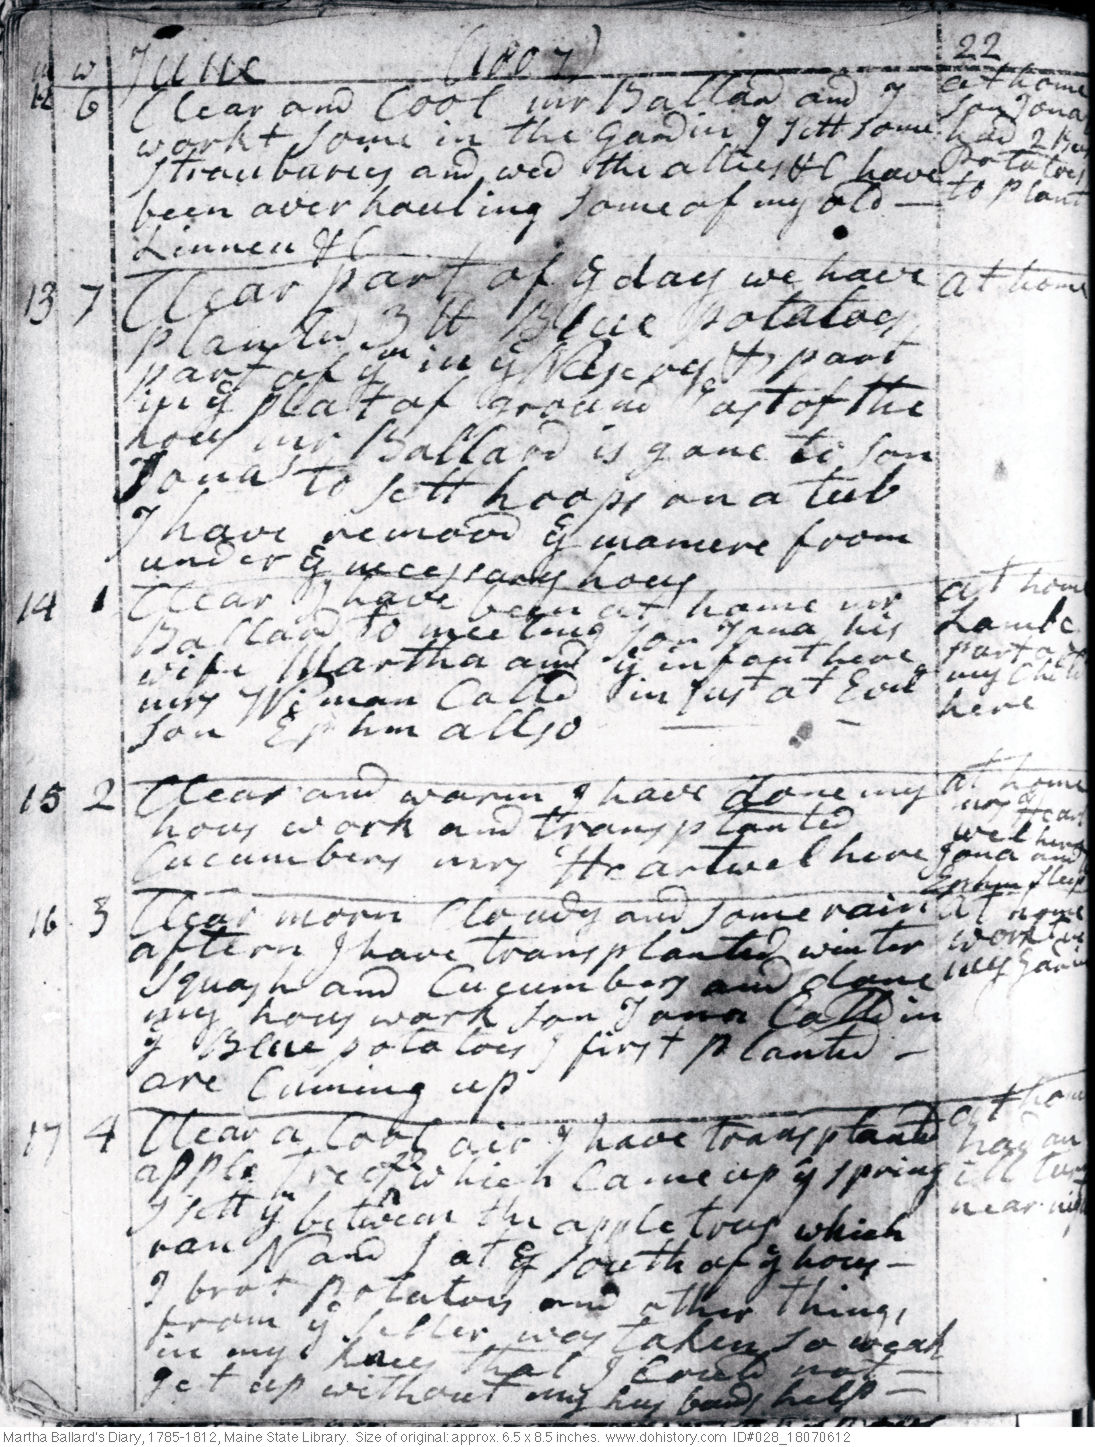 June (1807) 22
m w
12 6 Clear and Cool mr Ballard and I
workt Some in the Gardin I sett some
strauburies and wed the allies &C have
been overhauling Some of my old —
Linnen &C
at home
son Jona
had 2 Bus
Potatoes
to plant
13 7 Clear part of ye day we have
planted 3 lb Blue potatoes
part of ym in ye & part
in ye plat of ground East of the
hous mr Ballard is gone to son
Jonas to sett hoops on a tub
I have removd ye manure from
under ye necessary hous
at home
14 1 Clear I have been at home mr
Ballard to meeting son Jona his
wife Martha and ye infant here
mrs Wiman Calld in just at Evn
son Ephm allso — —
at home
Lambe
part of
my Child
here
15 2 Clear and warm I have done my
hous work and transplanted
Cucumbers mrs Heartwel here
at home
mrs Heart
wel here
Jona and
Ephm sleep
16 3 Clear morn Cloudy and some rain
aftern I have transplanted winter
squash and Cucumbers and done
my hous work son Jona Calld in
ye Blue potatoes I first planted —
are Cuming up
at home
workt in
my Gardin
17 4 Clear a Cool air I have transplantd
apple trees 22 which Came up ye spring
I sett ym between the apple trees which
ran N and S at ye South of ye hous —
I brot potatoes and other things
from ye seller was taken so weak
in my knees that I Could not —
get up without my husbands help —
at home
had an
ill turn
near night
Martha Ballard's Diary, 1785-1812, Maine State Library. Size of original: approx. 6.5 x 8.5 inches. www.dohistory.com ID#028_18070612